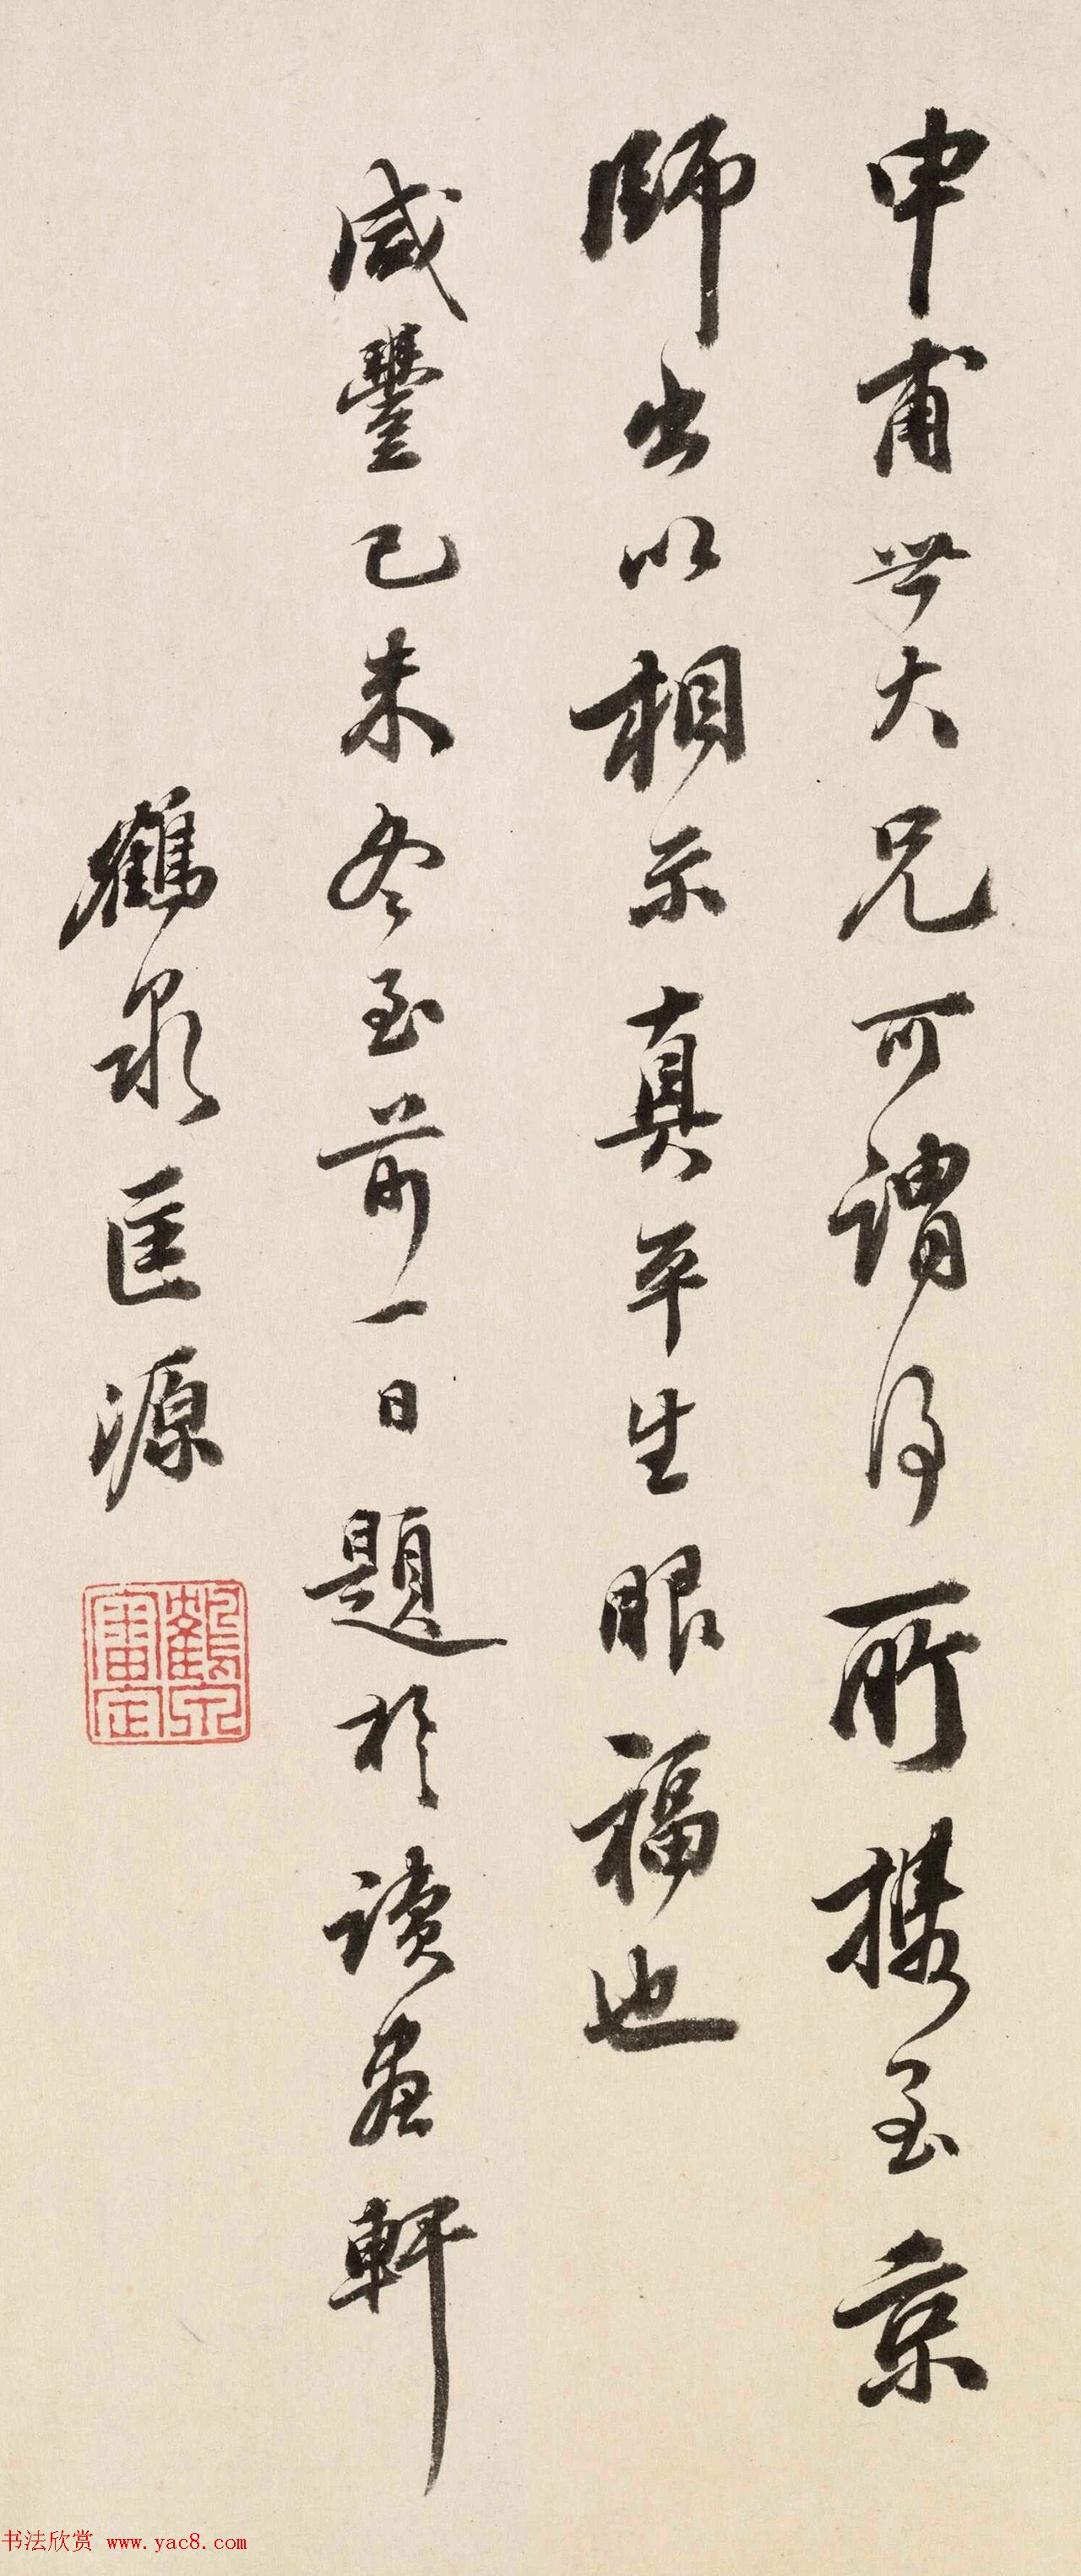 申甫世大兄可謂得所攜至京
師出以相示真平生眼福也
咸豐己未冬至前一日題於讀畫軒
鶴泉匡源
鶴泉審定
书法欣赏 www.yac8.com